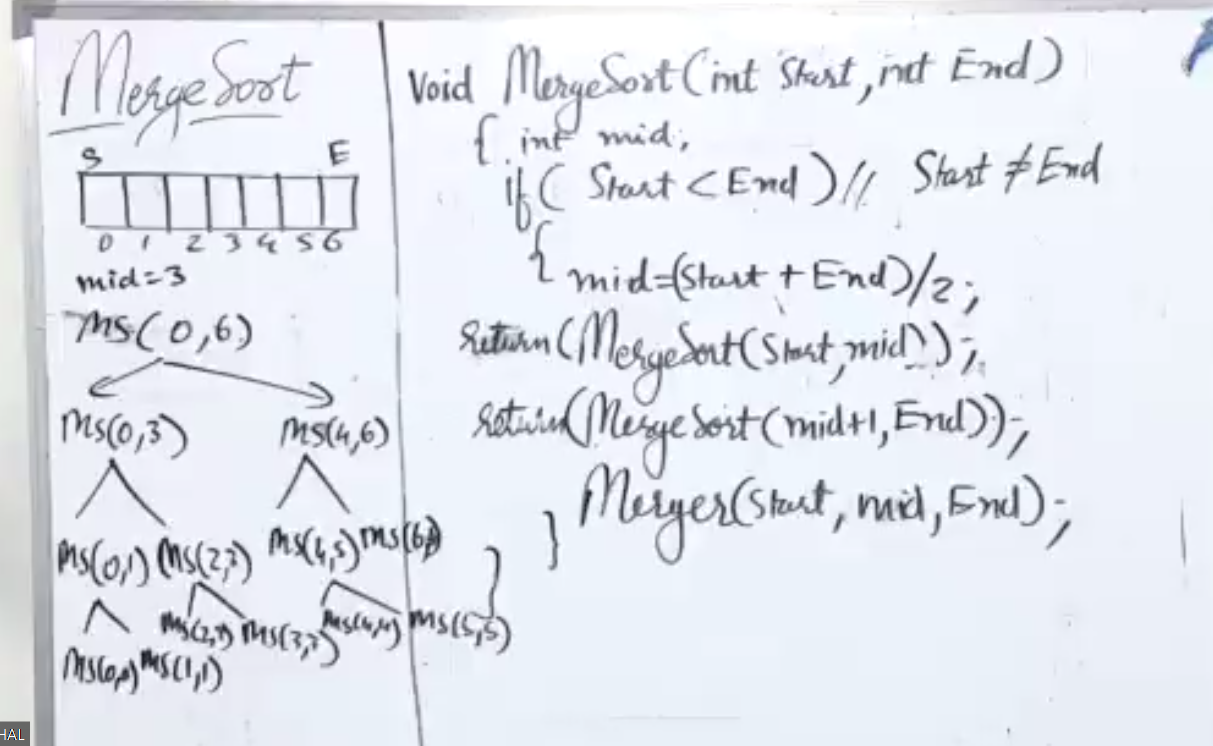 MergeSort
S E
0 1 2 3 4 5 6
mid=3
MS(0,6)
MS(0,3) MS(4,6)
MS(0,1) MS(2,3) MS(4,5) MS(6,6)
MS(2,2) MS(3,3) MS(4,4) MS(5,5)
MS(0,0) MS(1,1)
Void MergeSort(int Start, int End)
{ int mid;
if( Start < End ) // Start ≠ End
{ mid=(Start + End)/2;
return(MergeSort(Start,mid));
return(MergeSort(mid+1,End));
Merger(Start, mid, End);
}
}
HAL